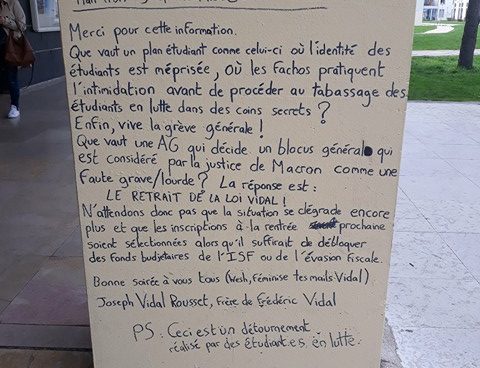 Merci pour cette information.
Que vaut un plan étudiant comme celui-ci où l'identité des
étudiants est méprisée, où les fachos pratiquent
l'intimidation avant de procéder au tabassage des
étudiants en lutte dans des coins secrets ?
Enfin, vive la grève générale !
Que vaut une AG qui décide un blocus général qui
est considéré par la justice de Macron comme une
Faute grave/lourde ? La réponse est :
LE RETRAIT DE LA LOI VIDAL !
N'attendons donc pas que la situation se dégrade encore
plus et que les inscriptions à la rentrée prochaine
soient sélectionnées alors qu'il suffirait de débloquer
des fonds budgétaires de l'ISF ou de l'évasion fiscale.
Bonne soirée à vous tous (Wesh, Féminise tes mails Vidal)
Joseph Vidal Rousset, Frère de Frédéric Vidal
PS : Ceci est un détournement
réalisé par des étudiant.e.s. en lutte.